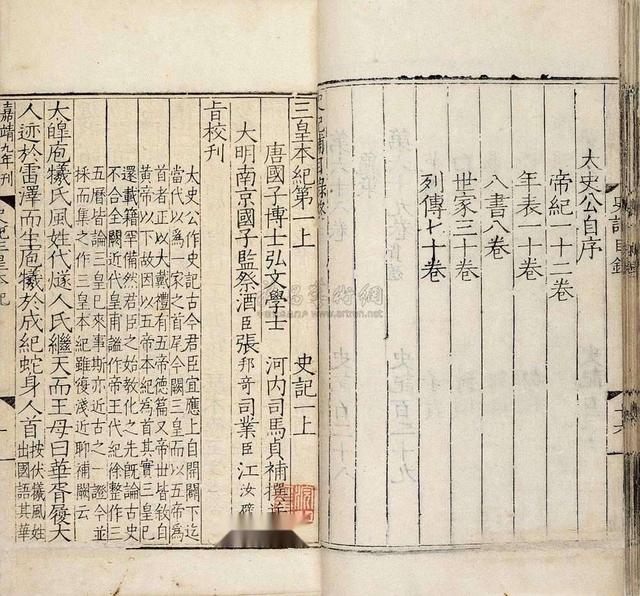 太史公自序
帝紀一十二卷
年表一十卷
八書八卷
世家三十卷
列傳七十卷
史記目錄
三皇本紀第一上 史記一上
唐國子博士弘文學士 河內司馬貞補撰
大明南京國子監祭酒臣張邦奇司業臣江汝
旨校刊
太史公作史記古今君臣宜應上自開闢下迄
當代以爲一家之首尾今闕三皇而以五帝爲
首者正以大戴禮有五帝德篇又帝世皆敘自
黃帝以下故因以五帝本紀爲首其實三皇已
還載籍罕備然君臣之始教化之先既論古史
不合全闕近代皇甫謐作帝王代紀徐整作三
五曆皆論三皇已來事斯亦近古之一證今並
採而集之作三皇本紀雖復淺近聊補闕云
太皥庖犧氏風姓代燧人氏繼天而王母曰華胥履大
人迹於雷澤而生庖犧於成紀蛇身人首
按伏犧風姓
出國語其華
嘉靖九年刊
史記三皇本紀
www.artron.net